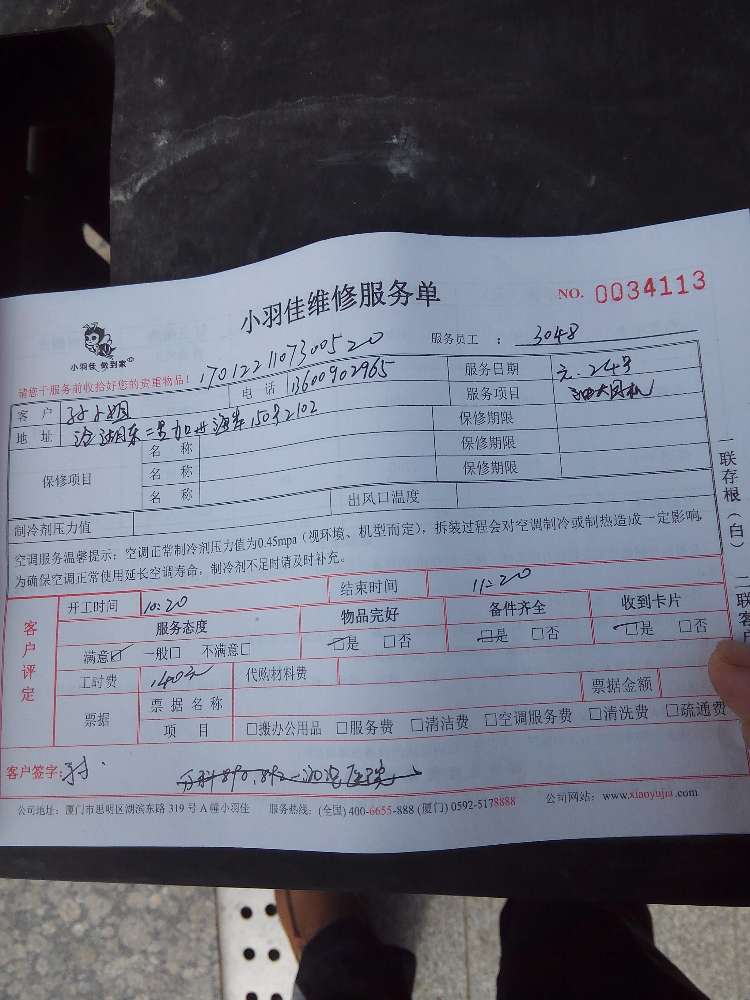 小羽佳维修服务单
NO. 0034113
小羽佳 做到家
服务员工 : 3048
请您于服务前收拾好您的贵重物品! 17012211073005 20
客户 孙小姐 电话 13600902965 服务日期 元.24号
地址 2102 服务项目 油烟机
保修项目 名称 保修期限
名称 保修期限
名称 保修期限
制冷剂压力值 出风口温度
空调服务温馨提示: 空调正常制冷剂压力值为0.45mpa (视环境、机型而定), 拆装过程会对空调制冷或制热造成一定影响,
为确保空调正常使用延长空调寿命, 制冷剂不足时请及时补充。
客户评定
开工时间 10:20 结束时间 11:20
服务态度 物品完好 备件齐全 收到卡片
满意☑ 一般□ 不满意□ ☑是 □否 ☑是 □否 ☑是 □否
工时费 140元 代购材料费
票据 票据名称 票据金额
项目 □搬办公用品 □服务费 □清洁费 □空调服务费 □清洗费 □疏通费
客户签字: 孙
公司地址: 厦门市思明区湖滨东路 319 号 A 幢小羽佳 服务热线: (全国) 400-6655-888 (厦门) 0592-5178888 公司网站: www.xiaoyujia.com
一联存根(白) 二联客户